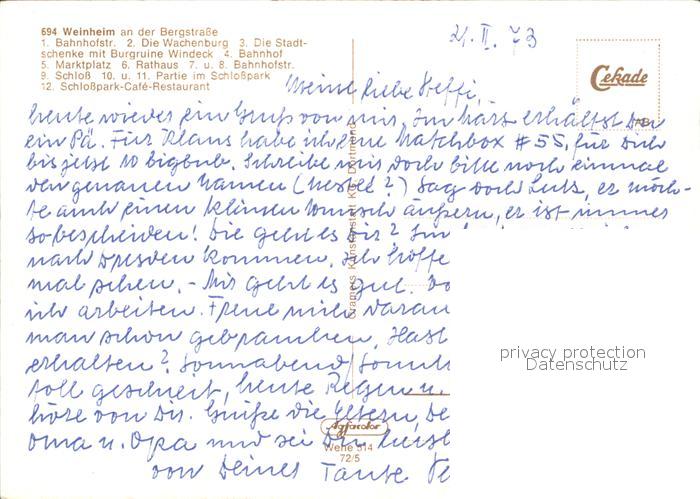 694 Weinheim an der Bergstraße
1. Bahnhofstr. 2. Die Wachenburg 3. Die Stadt-
schenke mit Burgruine Windeck 4. Bahnhof
5. Marktplatz 6. Rathaus 7. u. 8. Bahnhofstr.
9. Schloß 10. u. 11. Partie im Schloßpark
12. Schloßpark-Café-Restaurant
21. II. 73
Cekade
Meine liebe Steffi,
heute wieder ein Gruß von mir. Im März erhältst Du
ein Pä. Für Klaus habe ich eine Matchbox # 55, für Dich
bis jetzt 10 Schreibe mir doch bitte noch einmal
den genauen Namen ( ?) Sag doch Lutz, er möch-
te auch einen kleinen Wunsch äußern, er ist immer
so bescheiden! Wie geht es Dir? Im
nach Dresden kommen. Ich hoffe
mal sehen. - Mir geht es gut.
ich arbeiten. Freue mich daran
man schon gebrauchen. Hast
erhalten? Sonnabend/Sonnt
toll geschneit, heute Regen u.
höre von Dir. Grüße die Eltern,
Oma u. Opa und sei Du herzl
von Deiner Tante
Cramers Kunstanstalt KG, Dortmund
Agfacolor
Wehe 514
72/5
privacy protection
Datenschutz